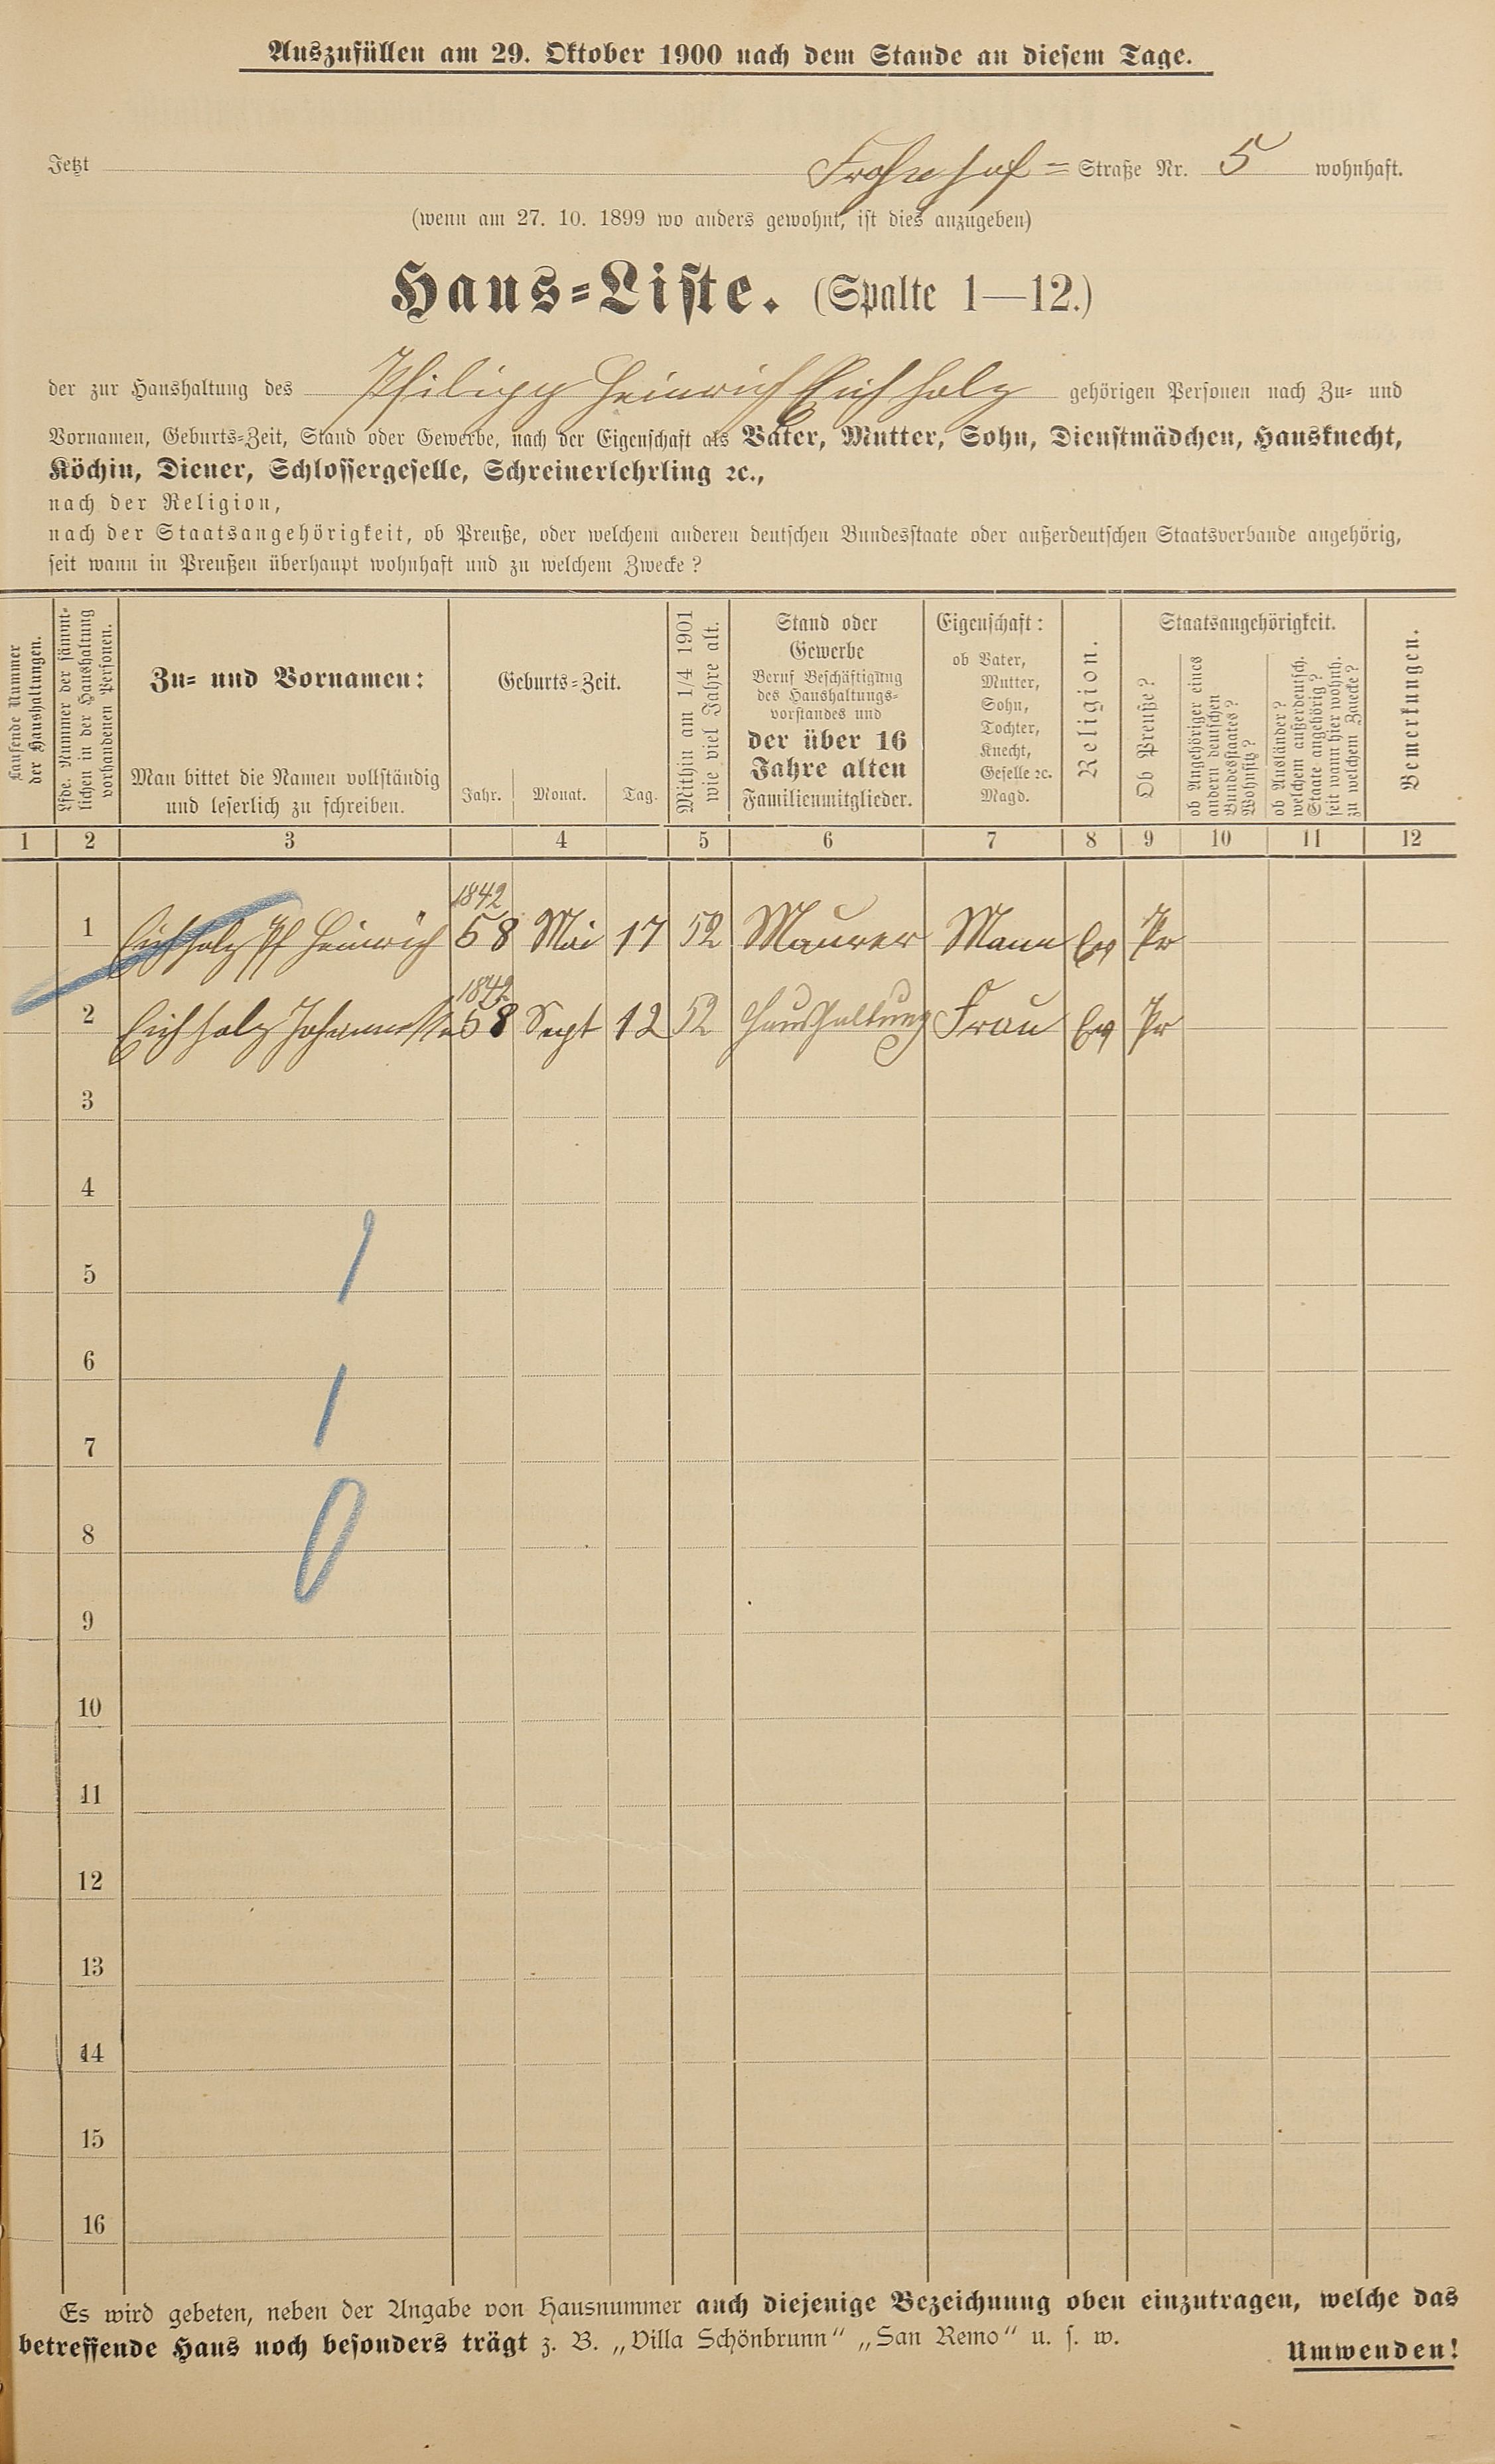 Auszufüllen am 29. Oktober 1900 nach dem Stande an diesem Tage.
Jetzt Frohnhof = Straße Nr. 5 wohnhaft.
(wenn am 27. 10. 1899 wo anders gewohnt, ist dies anzugeben)
Haus=Liste. (Spalte 1—12.)
der zur Haushaltung des Philipp Heinrich Eichholz gehörigen Personen nach Zu= und
Vornamen, Geburts=Zeit, Stand oder Gewerbe, nach der Eigenschaft als Vater, Mutter, Sohn, Dienstmädchen, Hausknecht,
Köchin, Diener, Schlossergeselle, Schreinerlehrling ꝛc.,
nach der Religion,
nach der Staatsangehörigkeit, ob Preuße, oder welchem anderen deutschen Bundesstaate oder außerdeutschen Staatsverbande angehörig,
seit wann in Preußen überhaupt wohnhaft und zu welchem Zwecke?
Laufende Nummer
der Haushaltungen.
Lfde. Nummer der sämmt-
lichen in der Haushaltung
vorhandenen Personen.
Zu= und Vornamen:
Man bittet die Namen vollständig
und leserlich zu schreiben.
Geburts=Zeit.
Jahr. Monat. Tag.
Mithin am 1/4 1901
wie viel Jahre alt.
Stand oder
Gewerbe
Beruf Beschäftigung
des Haushaltungs=
vorstandes und
der über 16
Jahre alten
Familienmitglieder.
Eigenschaft:
ob Vater,
Mutter,
Sohn,
Tochter,
Knecht,
Geselle ꝛc.
Magd.
Religion.
Staatsangehörigkeit.
Ob Preuße?
ob Angehöriger eines
andern deutschen
Bundesstaates?
Wohnsitz?
ob Ausländer?
welchem außerdeutsch.
Staate angehörig?
seit wann hier wohnh.
zu welchem Zwecke?
Bemerkungen.
1 2 3 4 5 6 7 8 9 10 11 12
1842
1 Eichholz Pf Heinrich 58 Mai 17 52 Maurer Mann Ev Pr
1842
2 Eichholz 58 Sept 12 52 Haushaltung Frau Ev Pr
3
4
5
6
7
8
9
10
11
12
13
14
15
16
Es wird gebeten, neben der Angabe von Hausnummer auch diejenige Bezeichnung oben einzutragen, welche das
betreffende Haus noch besonders trägt z. B. „Villa Schönbrunn“ „San Remo“ u. s. w.
Umwenden!